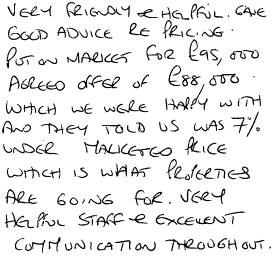 VERY FRIENDLY & HELPFUL. GAVE
GOOD ADVICE RE PRICING.
PUT ON MARKET FOR £95,000
AGREED OFFER OF £88,000.
WHICH WE WERE HAPPY WITH
AND THEY TOLD US WAS 7%
UNDER MARKETED PRICE
WHICH IS WHAT PROPERTIES
ARE GOING FOR. VERY
HELPFUL STAFF & EXCELLENT
COMMUNICATION THROUGHOUT.